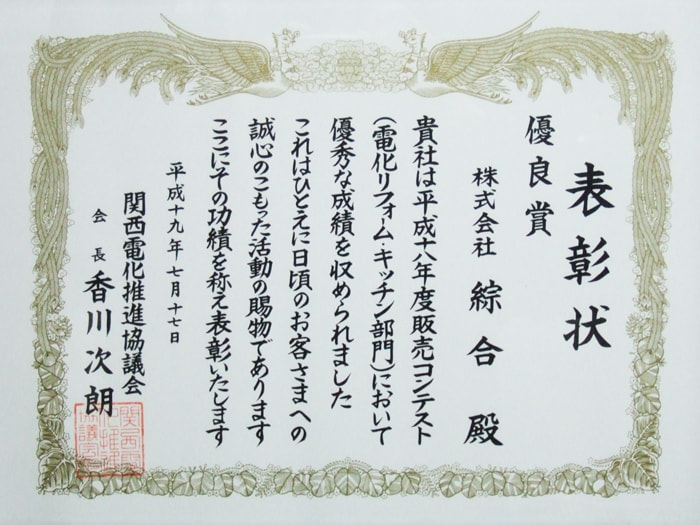 表彰状
優良賞
株式会社 綜合 殿
貴社は平成十八年度販売コンテスト
(電化リフォーム・キッチン部門)において
優秀な成績を収められました
これはひとえに日頃のお客さまへの
誠心のこもった活動の賜物であります
ここにその功績を称え表彰いたします
平成十九年七月十七日
関西電化推進協議会
会長 香川次朗